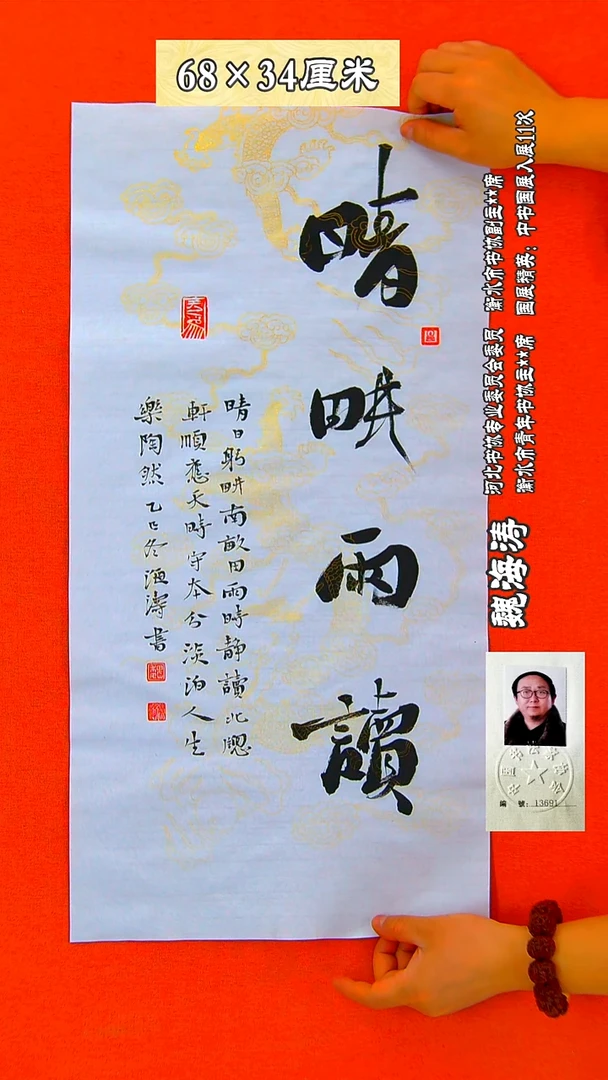 68×34厘米
晴畊雨讀
晴日躬畊南畝田雨時静讀北牕
軒順應天時守本分淡泊人生
樂陶然 乙巳冬海濤書
河北书协专业委员会委员 衡水市书协副主**席
衡水市青年书协主**席 国展精英：中书国展入展11次
魏海涛
编 號：13691